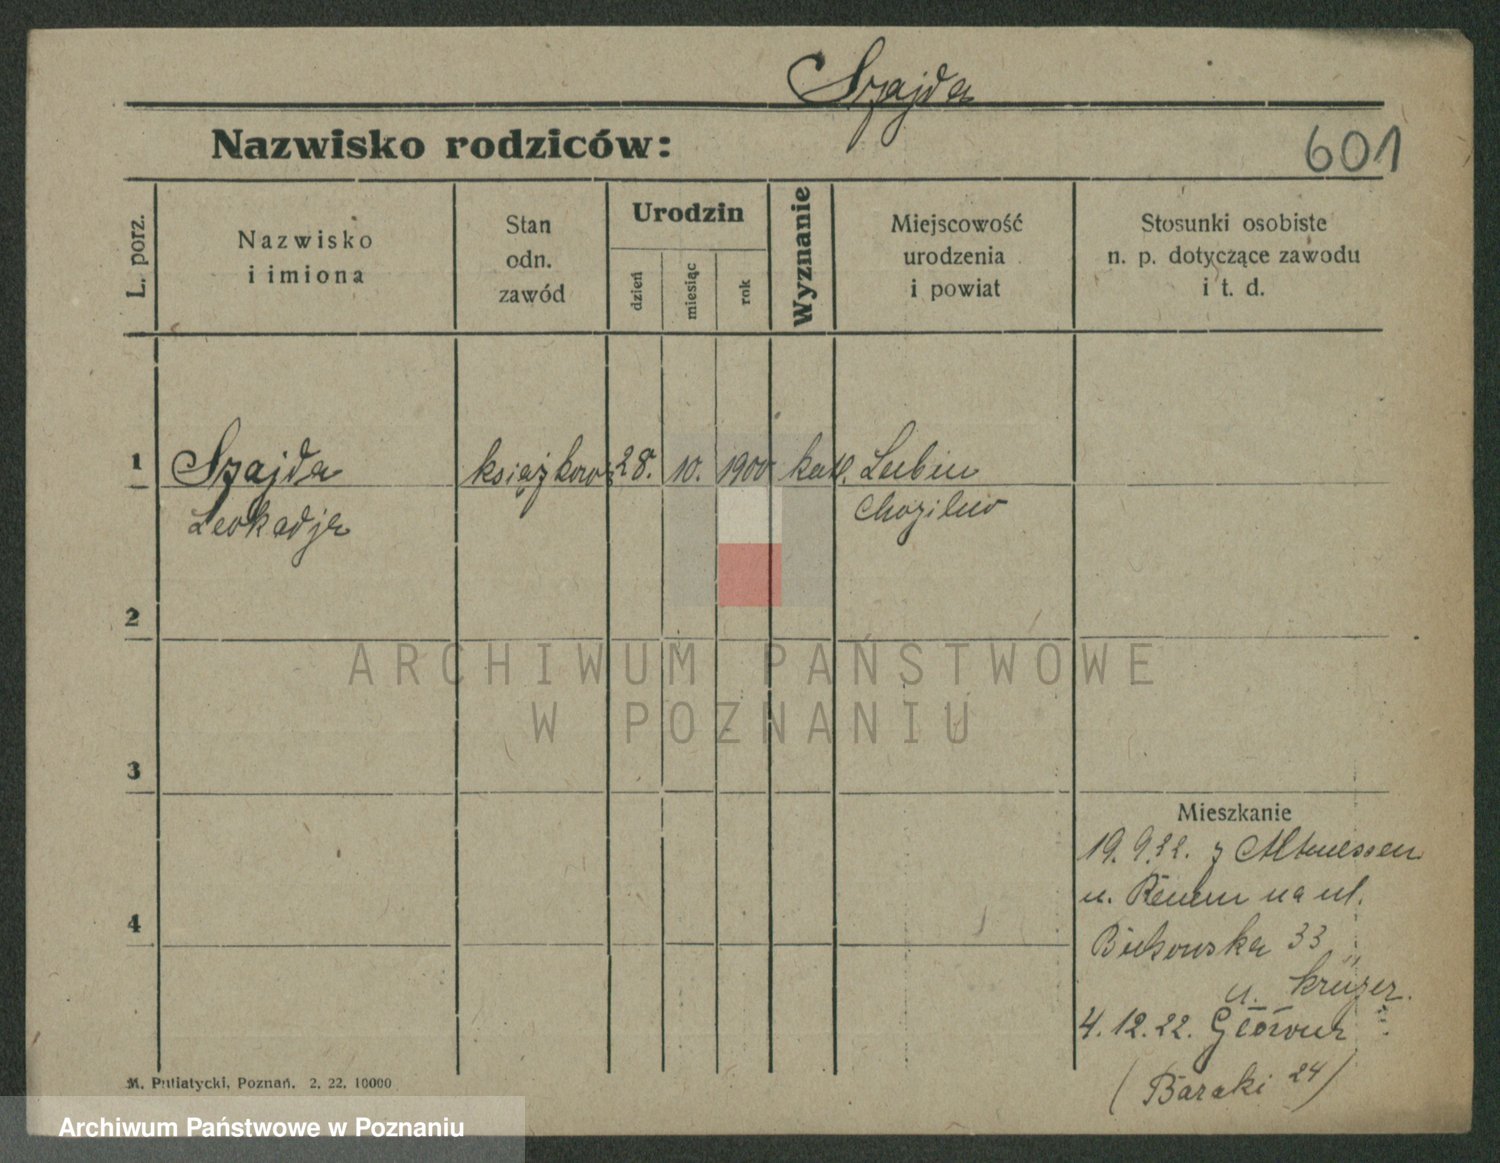 Szajda
Nazwisko rodziców:
601
L. porz.
Nazwisko
i imiona
Stan
odn.
zawód
Urodzin
dzień
miesiąc
rok
Wyznanie
Miejscowość
urodzenia
i powiat
Stosunki osobiste
n. p. dotyczące zawodu
i t. d.
1
Szajda
Leokadja
28. 10. 1900 kath. Lubin
2
ARCHIWUM PAŃSTWOWE
W POZNANIU
3
Mieszkanie
19. 9. 22. z Altenessen
u. na ul.
4
Bukowska 33
u.
4. 12. 22. Główna
(Baraki 24)
M. Putiatycki, Poznań. 2. 22. 10000
Archiwum Państwowe w Poznaniu